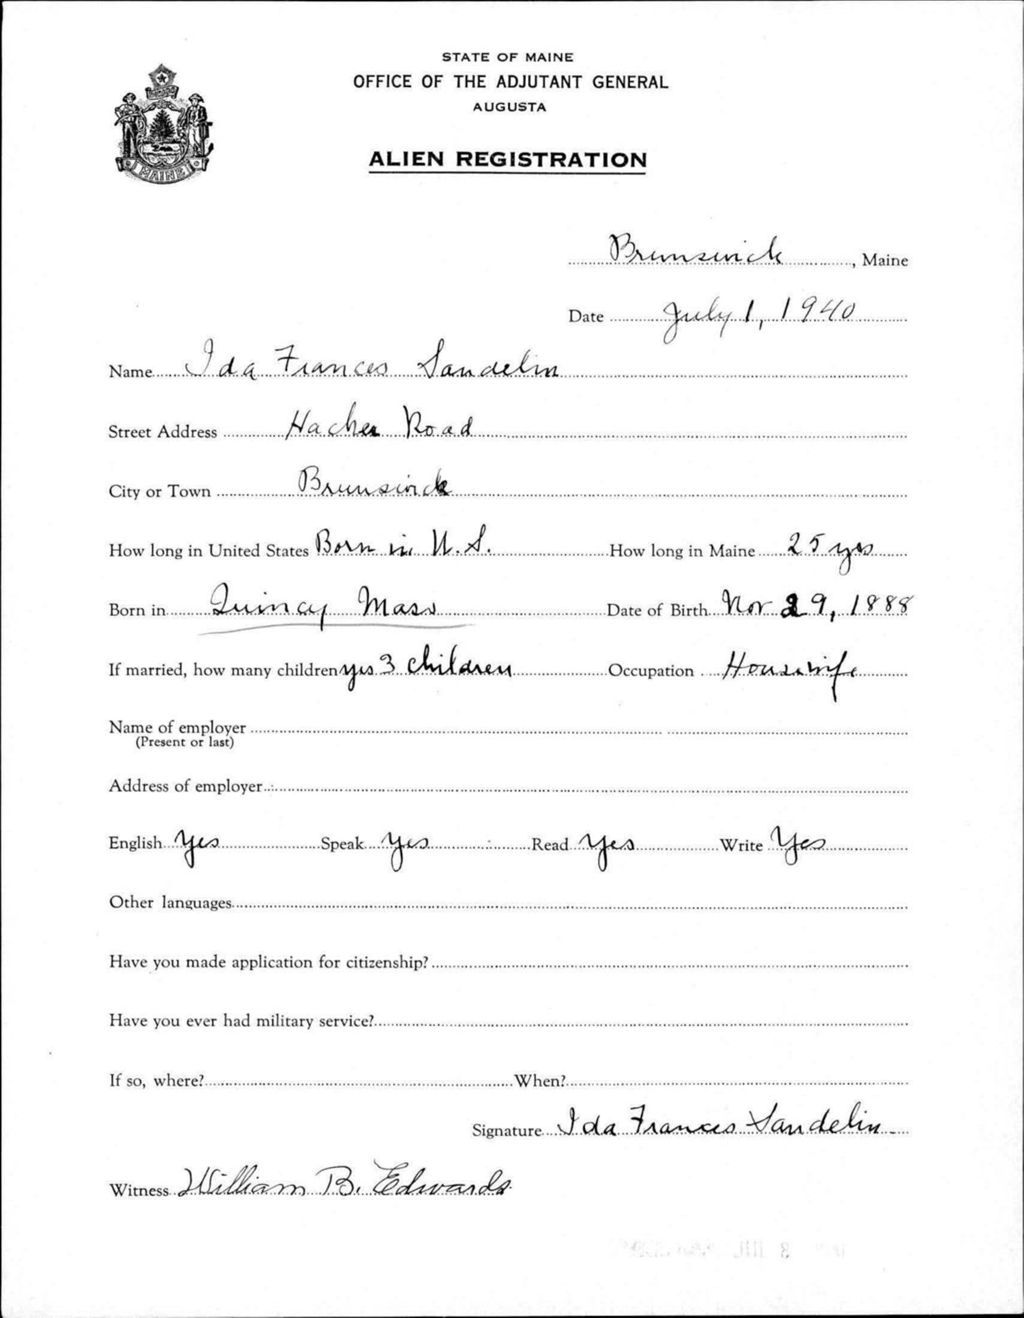 STATE OF MAINE
OFFICE OF THE ADJUTANT GENERAL
AUGUSTA
ALIEN REGISTRATION
MAINE
Brunswick, Maine
Date July 1, 1940
Name Ida Frances Sandelin
Street Address Hacker Road
City or Town Brunswick
How long in United States Born in U.S. How long in Maine 25 yrs
Born in Quincy Mass Date of Birth Nov 29, 1888
If married, how many children yes 3 children Occupation Housewife
Name of employer
(Present or last)
Address of employer
English Yes Speak Yes Read Yes Write Yes
Other languages
Have you made application for citizenship?
Have you ever had military service?
If so, where? When?
Signature Ida Frances Sandelin
Witness William B. Edwards